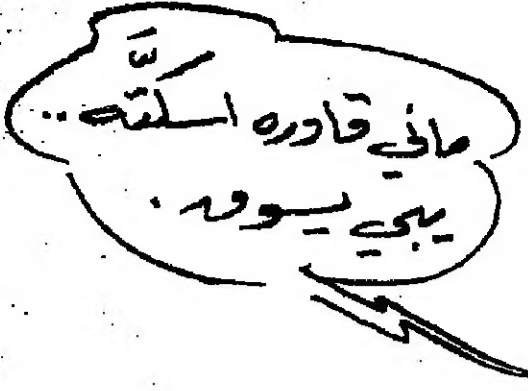 ماني قادره اسكتّه ..
يبي يسوق .